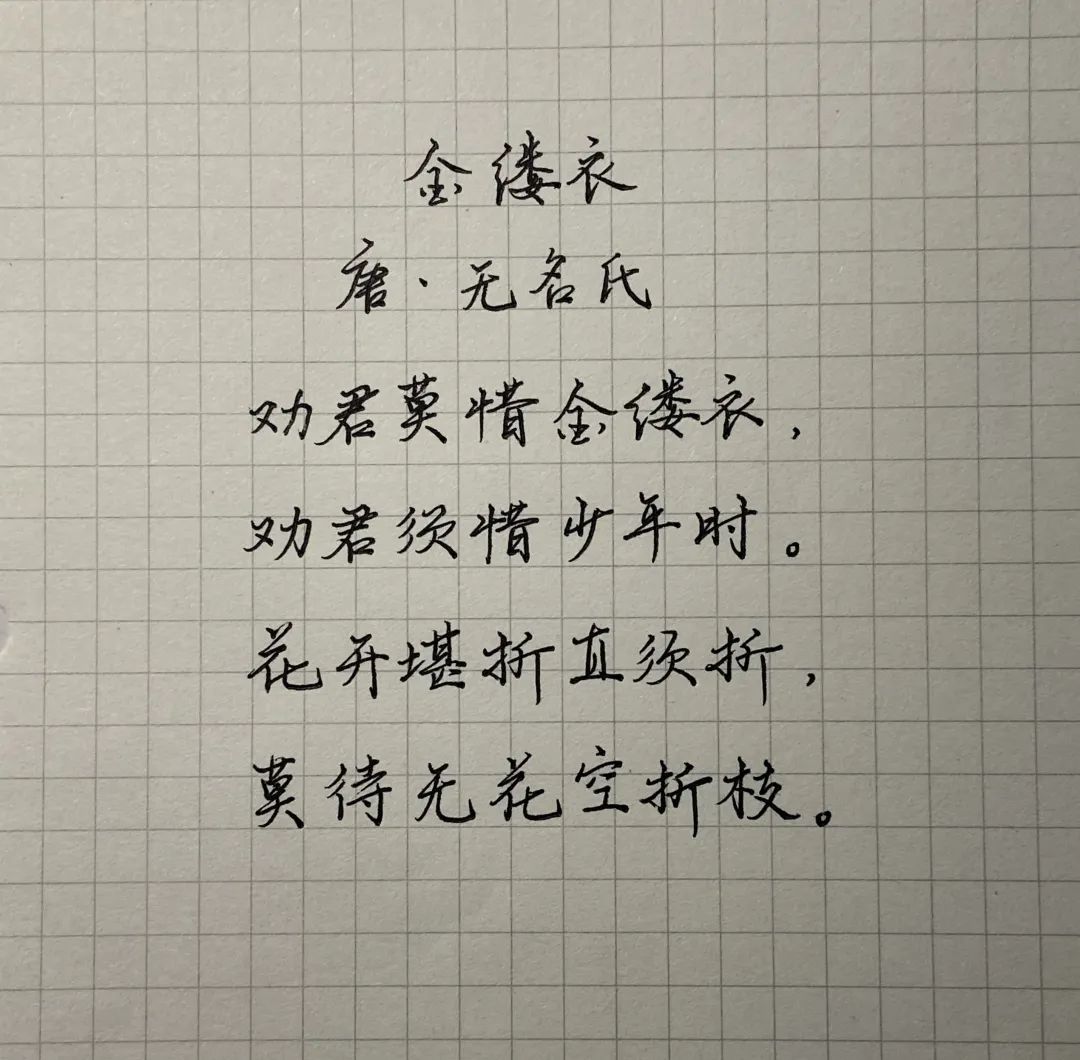 金缕衣
唐·无名氏
劝君莫惜金缕衣，
劝君须惜少年时。
花开堪折直须折，
莫待无花空折枝。